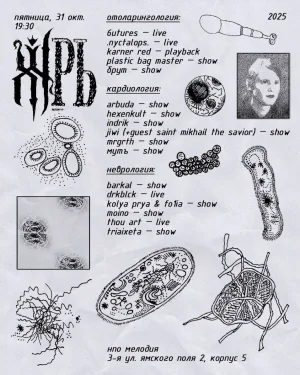 пятница, 31 окт.
19:30
2025
ЖРЬ
отоларингология:
6utures — live
.nyctalops. — live
karner red — playback
plastic bag master — show
брут — show
кардиология:
arbuda — show
hexenkult — show
indrik — show
jiwi (+guest saint mikhail the savior) — show
mrgrth — show
муть — show
неврология:
barkal — show
drkblck — live
kolya prya & fo1ia — show
moino — show
thou art — live
triaixeta — show
нпо мелодия
3-я ул. ямского поля 2, корпус 5